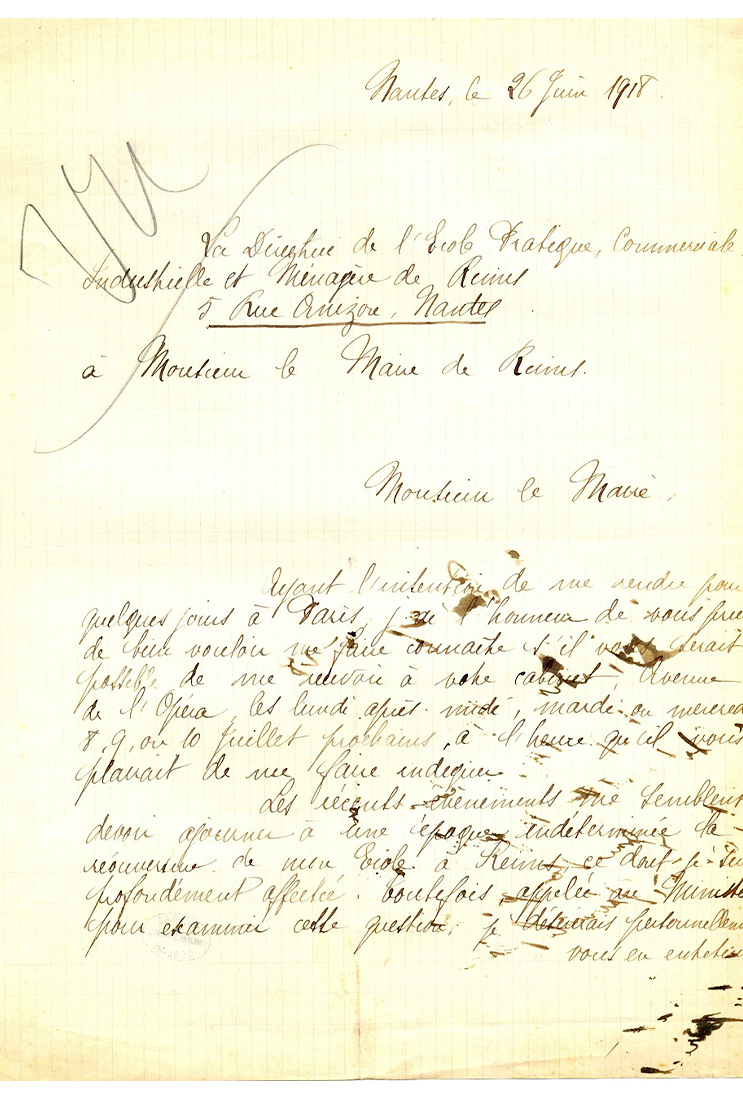 Nantes, le 26 Juin 1918.
Vu
La Directrice de l'Ecole Pratique, Commerciale,
Industrielle et Ménagère de Reims
5 Rue, Nantes
à Monsieur le Maire de Reims.
Monsieur le Maire,
Ayant l'intention de me rendre pour
quelques jours à Paris, j'ai l'honneur de vous prier
de bien vouloir me faire connaître s'il vous serait
possible de me recevoir à votre cabinet, Avenue
de l'Opéra, les lundi après-midi, mardi ou mercred
8, 9, ou 10 Juillet prochains, à l'heure qu'il vous
plairait de me faire indiquer.
Les récents évènements me semblent
devoir ajourner à une époque indéterminée la
réouverture de mon Ecole à Reims, ce dont je sui
profondément affectée. Toutefois, appelée au Ministè
pour examiner cette question, je désirerais personnellem
vous en entreten